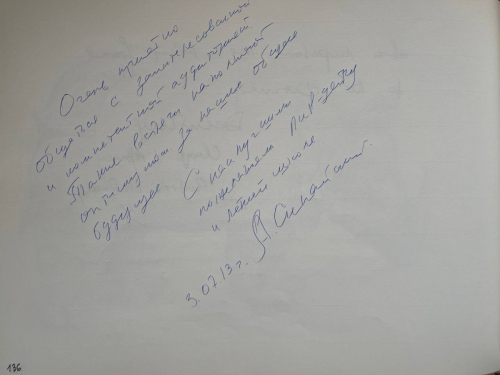 Очень приятно
общаться с заинтересованной
и компетентной аудиторией
Такие встречи наполняют
оптимизмом за наше общее
будущее
С наилучшими
пожеланиями Лир-центру
и летней школе
3.07.13 г.
136